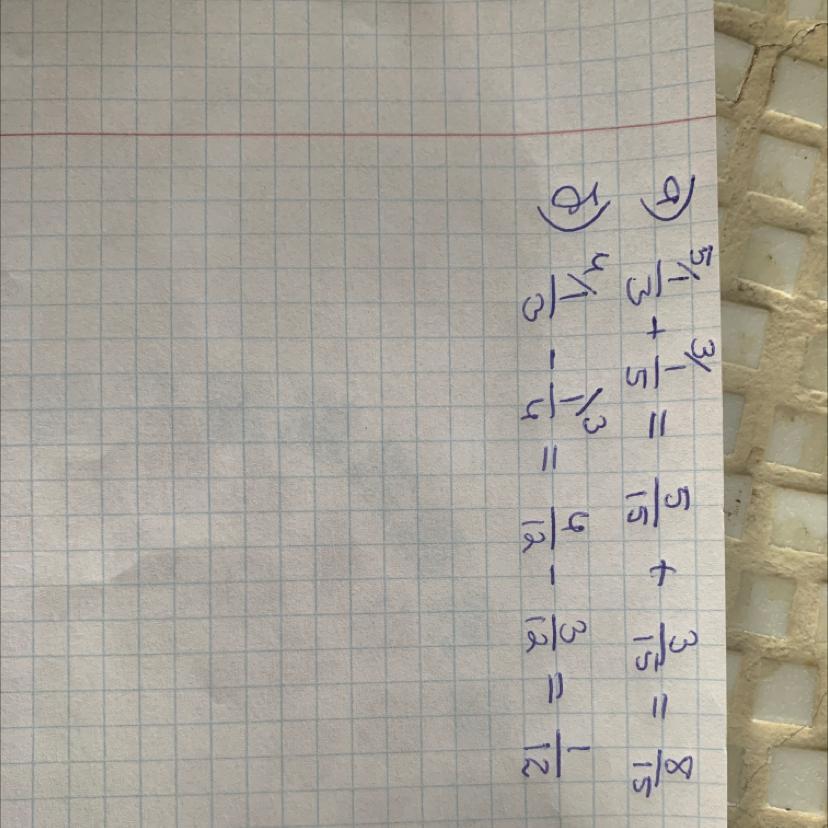 а) 5/ 1/3 + 3/ 1/5 = 5/15 + 3/15 = 8/15
б) 4/ 1/3 - 1/4 \3 = 4/12 - 3/12 = 1/12